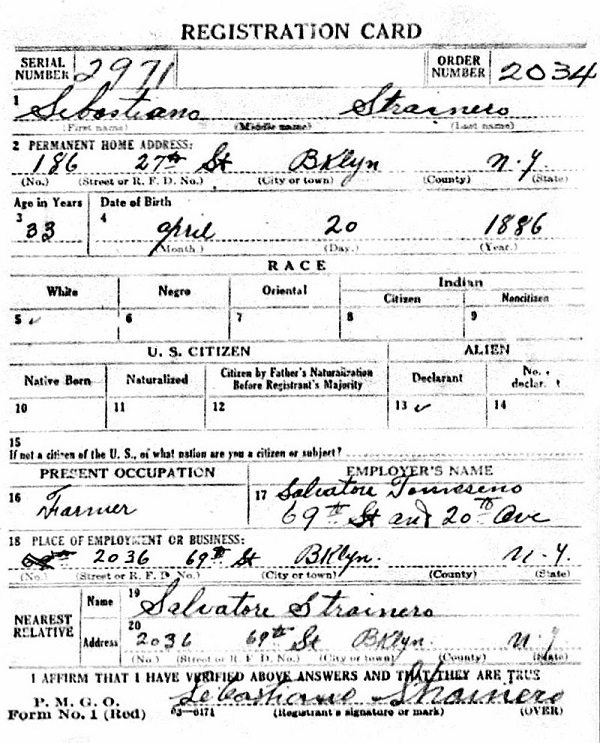 REGISTRATION CARD
SERIAL NUMBER 2971 ORDER NUMBER 2034
1 Sebastiano Strainero
(First name) (Middle name) (Last name)
2 PERMANENT HOME ADDRESS:
186 27th St BKlyn N.Y.
(No.) (Street or R. F. D. No.) (City or town) (County) (State)
Age in Years Date of Birth
3 33 4 April 20 1886
(Month.) (Day.) (Year.)
RACE
White Negro Oriental Indian
Citizen Noncitizen
5 ✓ 6 7 8 9
U. S. CITIZEN ALIEN
Native Born Naturalized Citizen by Father's Naturalization Before Registrant's Majority Declarant
10 11 12 13 ✓ 14
15
If not a citizen of the U. S., of what nation are you a citizen or subject?
PRESENT OCCUPATION EMPLOYER'S NAME
16 Farmer 17 Salvatore
69th St and 20th Ave
18 PLACE OF EMPLOYMENT OR BUSINESS:
2036 69th St BKlyn. N.Y.
(No.) (Street or R. F. D. No.) (City or town) (County) (State)
NEAREST RELATIVE
Name 19 Salvatore Strainero
Address 20 2036 69th St BKlyn N.Y
(No.) (Street or R. F. D. No.) (City or town) (County) (State)
I AFFIRM THAT I HAVE VERIFIED ABOVE ANSWERS AND THAT THEY ARE TRUE
P. M. G. O.
Form No. 1 (Red) 03—6171 Sebastiano Strainero
(Registrant's signature or mark) (OVER)